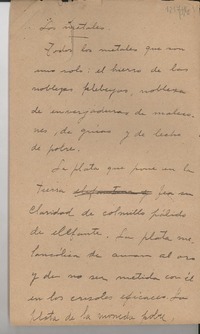 Los metales.
Todos los metales que son
uno solo: el hierro de las
noblezas plebeyas, nobleza
de encerraduras de malaso-
nes, de guisas y de lecho
de pobre.
La plata que pone en la
Tierra fea su
claridad de colmillo pálido
de elefante. La plata me-
lancólica de amar al oro
y de no ser metida con él
en los crisoles eficaces. La
plata de la moneda sobre